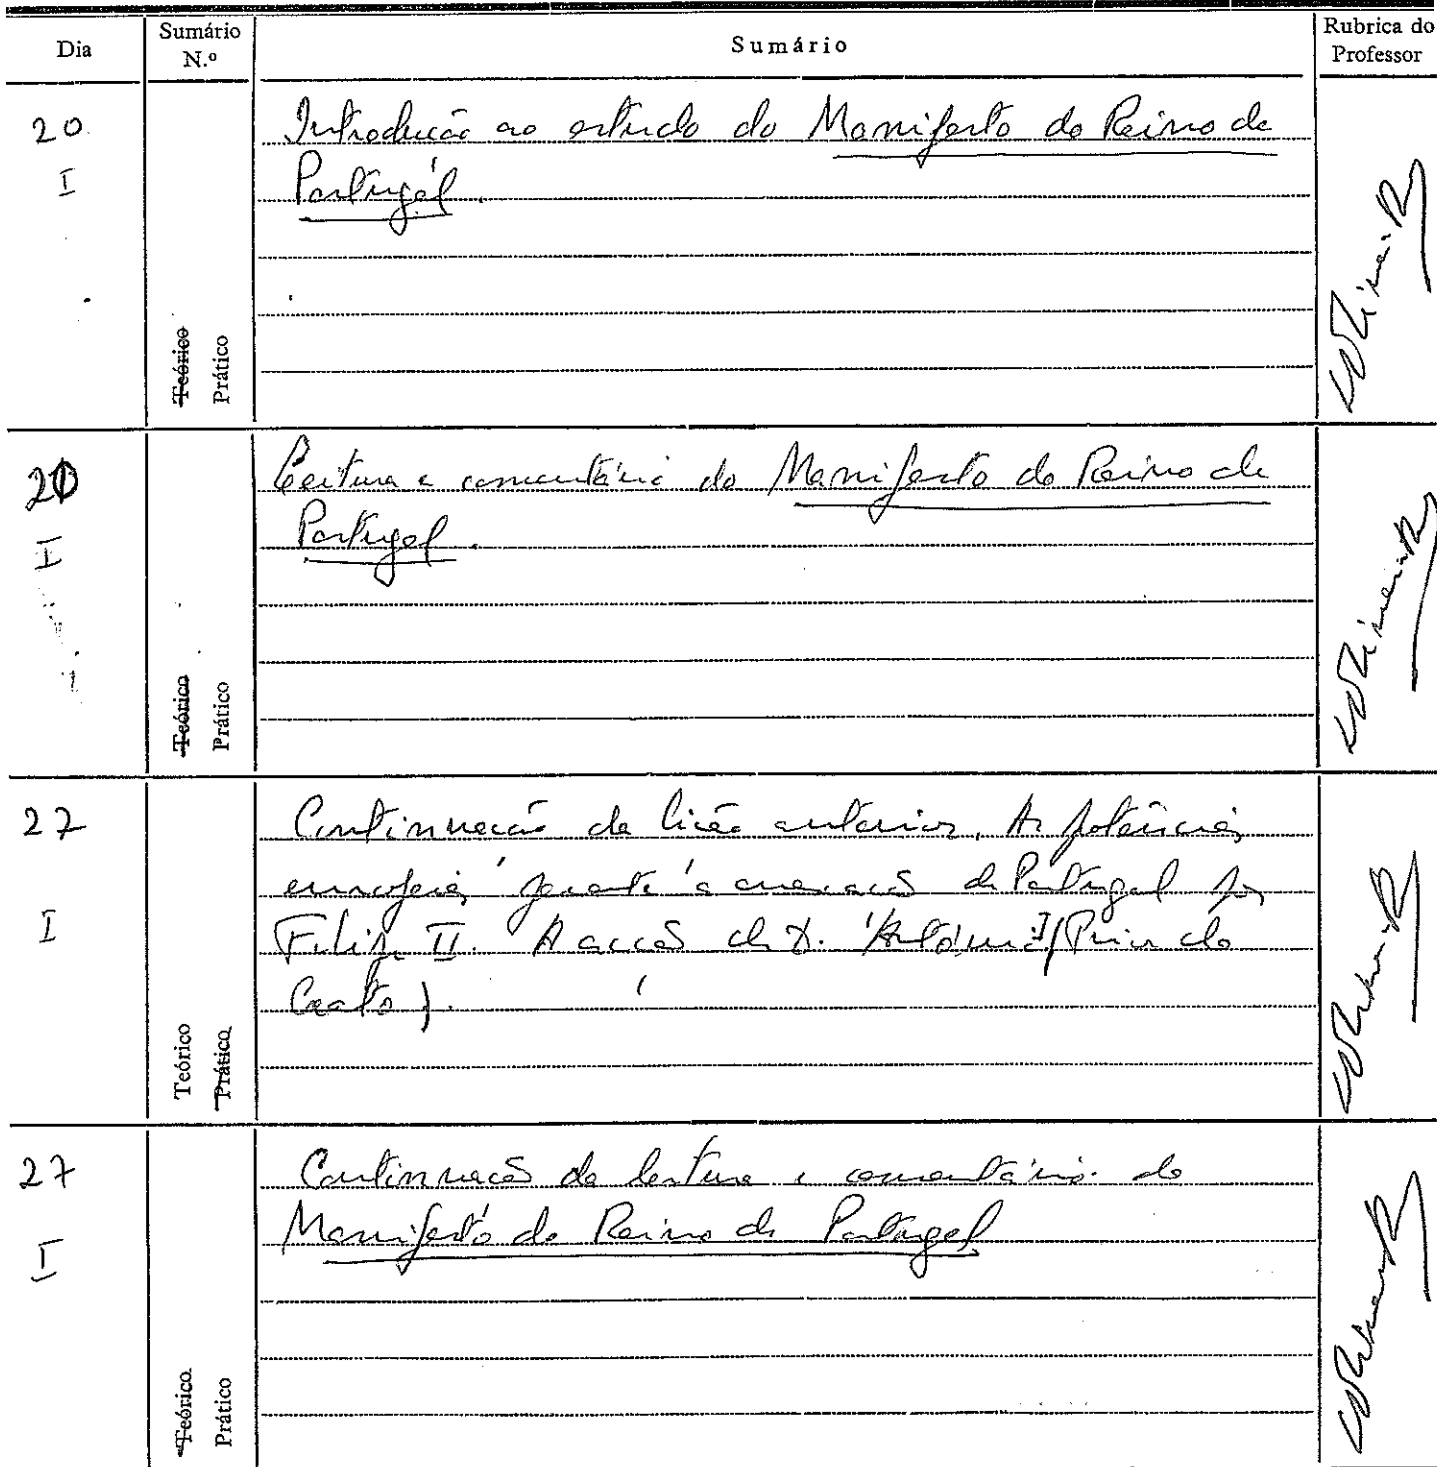 Dia
Sumário
N.º
Sumário
Rubrica do
Professor
20
I
Introdução ao estudo do Manifesto do Reino de
Portugal.
Teórico
Prático
20
I
Leitura e comentário do Manifesto do Reino de
Portugal.
Teórico
Prático
27
I
Continuação da lição anterior. As potências
europeias perante a anexação de Portugal por
Filipe II. A acção de D. António I (Prior do
Crato).
Teórico
Prático
27
I
Continuação da leitura e comentário do
Manifesto do Reino de Portugal
Teórico
Prático